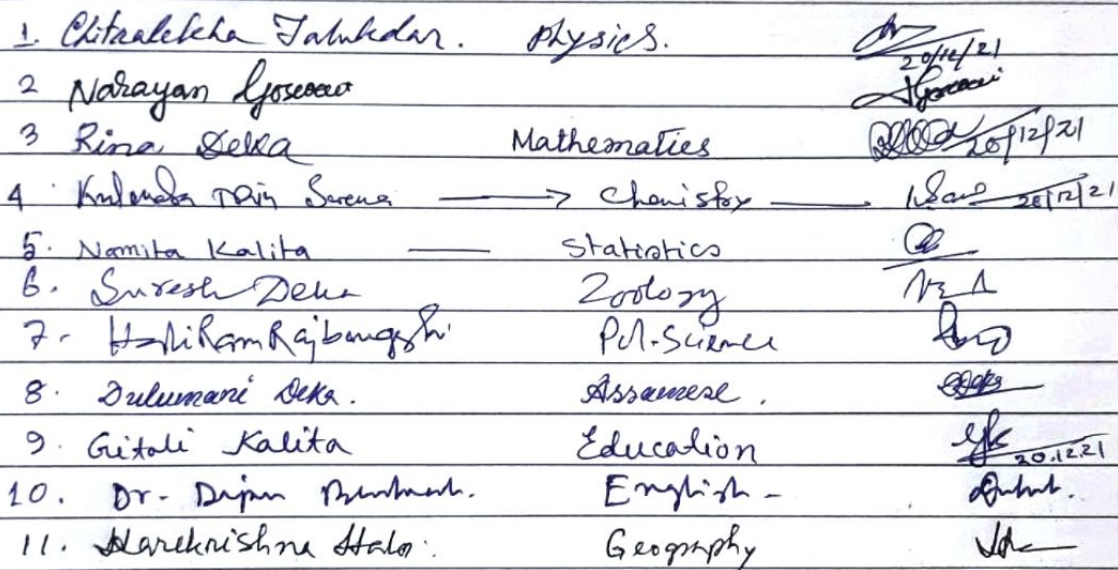 1. Chitralekha Talukdar. Physics. 20/12/21
2 Narayan Goswami Goswami
3 Rina Deka Mathematics 20/12/21
4 Sarma → Chemistry 20/12/21
5. Namita Kalita — Statistics
6. Suresh Deka Zoology
7. HaliRam Rajbongshi Pol-Science
8. Dulumani Deka. Assamese.
9. Gitali Kalita Education 20.12.21
10. Dr. English -
11. Harekrishna Geography